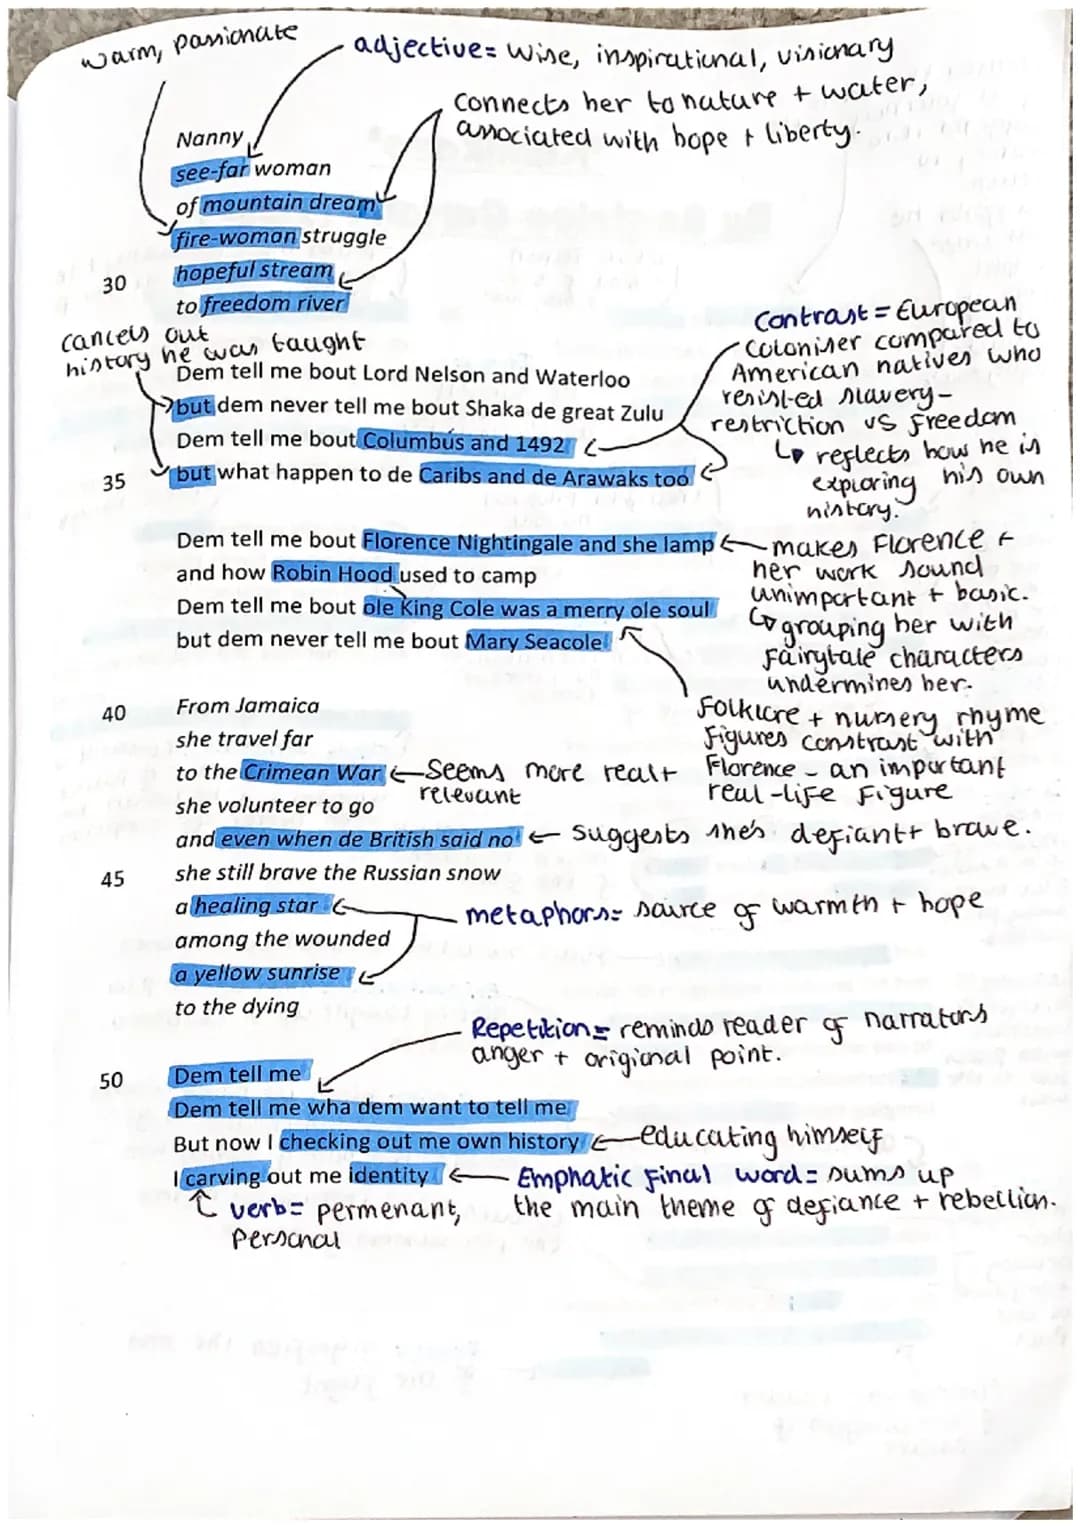 warm, passionate
adjective= wise, inspirational, visionary
connects her to nature + water,
associated with hope + liberty.
Nanny
see-far woman
of mountain dream
fire-woman struggle
hopeful stream
30
to freedom river
cancels out
history he was taught
Dem tell me bout Lord Nelson and Waterloo
but dem never tell me bout Shaka de great Zulu
Dem tell me bout Columbus and 1492
but what happen to de Caribs and de Arawaks too
35
Contrast = European
coloniser compared to
American natives who
resisted slavery-
restriction vs freedom.
↳ reflects how he is
exploring his own
history.
Dem tell me bout Florence Nightingale and she lamp
and how Robin Hood used to camp
Dem tell me bout ole King Cole was a merry ole soul
but dem never tell me bout Mary Seacole
makes Florence +
her work sound
unimportant + basic.
↳ grouping her with
fairytale characters
undermines her.
Folklore + nursery rhyme
figures constrast with
Florence - an important
real-life figure
40
From Jamaica
she travel far
to the Crimean War
seems more real +
relevant
she volunteer to go
and even when de British said no
suggests she's defiant + brave.
45
she still brave the Russian snow
a healing star
among the wounded
a yellow sunrise
to the dying
metaphors= source of warmth + hope
Repetition= reminds reader of narrators
anger + origional point.
50
Dem tell me
Dem tell me wha dem want to tell me
But now I checking out me own history
educating himself
I carving out me identity
Emphatic final word= sums up
the main theme of defiance + rebellion.
verb= permenant,
personal